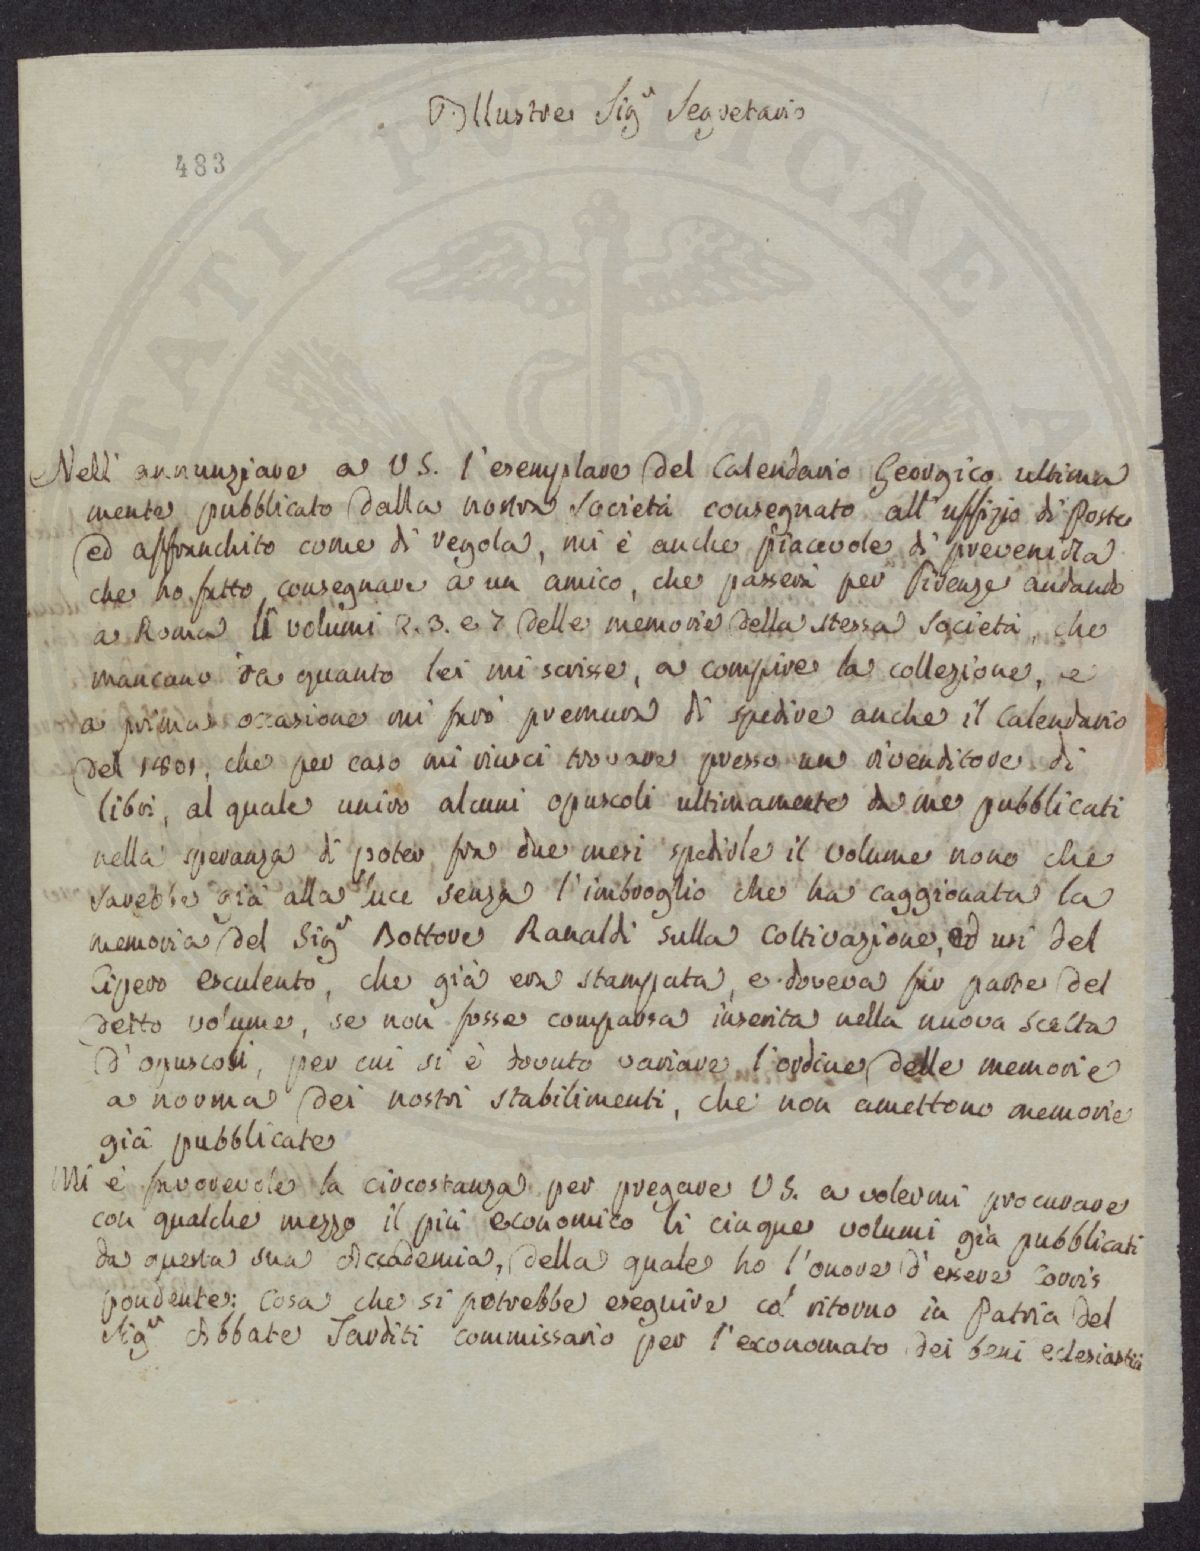 Illustre Sig.r Segretario
483
Nell' annunziare a VS. l'esemplare del Calendario Georgico ultima
mente pubblicato dalla nostra Società consegnato all'uffizio di Poste
ed affranchito come di regola, mi è anche piacevole di prevenirla
che ho fatto consegnare a un amico, che passerà per Firenze andando
a Roma li volumi 2. 3. e 7 delle memorie della stessa Società, che
mancano da quanto lei mi scrisse, a compire la collezione, e
a prima occasione mi farò premura di spedire anche il Calendario
del 1801, che per caso mi riuscì trovare presso un rivenditore di
libri, al quale unirò alcuni opuscoli ultimamente da me pubblicati
nella speranza di poter fra due mesi spedirle il volume nono che
sarebbe già alla luce senza l'imbroglio che ha caggionata la
memoria del Sig.r Dottore Ranaldi sulla Coltivazione, ed usi del
Cipero esculento, che già era stampata, e doveva far parte del
detto volume, se non fosse comparsa inserita nella nuova Scelta
d'opuscoli, per cui si è dovuto variare l'ordine delle memorie
a norma dei nostri stabilimenti, che non amettono memorie
già pubblicate
Mi è favorevole la circostanza per pregare VS. a volermi procurare
con qualche mezzo il più economico li cinque volumi già pubblicati
da questa sua Accademia, della quale ho l'onore d'essere Corris
pondente: Cosa che si potrebbe eseguire co' ritorno in Patria del
Sig.r Abbate Tarditi commissario per l'economato dei beni eclesiastici
TATI PVBLICAE